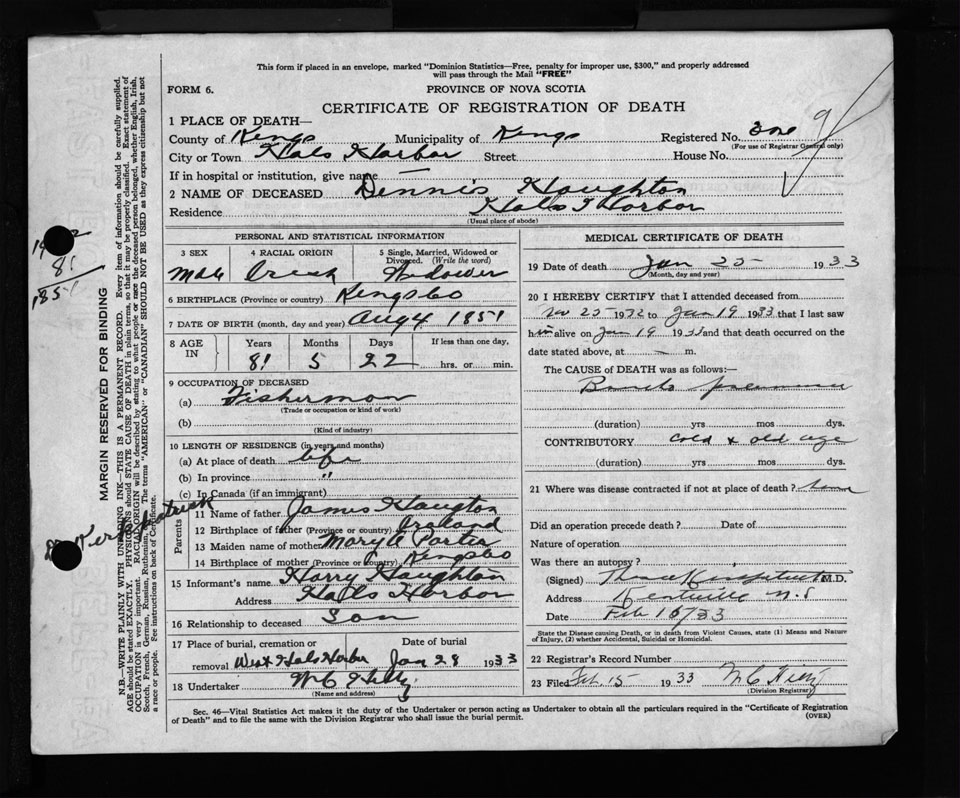 This form if placed in an envelope, marked "Dominion Statistics—Free, penalty for improper use, $300," and properly addressed
will pass through the Mail "FREE"
FORM 6.
PROVINCE OF NOVA SCOTIA
CERTIFICATE OF REGISTRATION OF DEATH
1 PLACE OF DEATH—
County of Kings Municipality of Kings Registered No.
(For use of Registrar General only)
City or Town Hals Harbor Street House No.
If in hospital or institution, give name —
2 NAME OF DECEASED Dennis Houghton
Residence Halls Harbor
(Usual place of abode)
PERSONAL AND STATISTICAL INFORMATION
3 SEX 4 RACIAL ORIGIN 5 Single, Married, Widowed or Divorced. (Write the word)
Male Widower
6 BIRTHPLACE (Province or country) Kings Co
7 DATE OF BIRTH (month, day and year) Aug 4 1851
8 AGE IN Years Months Days If less than one day,
81 5 22 hrs. or min.
9 OCCUPATION OF DECEASED
(a) Fisherman
(Trade or occupation or kind of work)
(b)
(Kind of industry)
10 LENGTH OF RESIDENCE (in years and months)
(a) At place of death life
(b) In province "
(c) In Canada (if an immigrant)
Parents
11 Name of father James Haughton
12 Birthplace of father (Province or country) Ireland
13 Maiden name of mother Mary A Porter
14 Birthplace of mother (Province or country) Kings Co
15 Informant's name Harry Houghton
Address Halls Harbor
16 Relationship to deceased Son
17 Place of burial, cremation or removal Date of burial
West Hals Harbor Jan 28 1933
18 Undertaker
(Name and address)
MEDICAL CERTIFICATE OF DEATH
19 Date of death Jan 25 1933
(Month, day and year)
20 I HEREBY CERTIFY that I attended deceased from
Nov 25 1932 to Jan 19 1933 that I last saw
him alive on Jan 19 1933 and that death occurred on
date stated above, at — m.
The CAUSE of DEATH was as follows:—
(duration) yrs mos dys.
CONTRIBUTORY cold & old age
(duration) yrs mos dys.
21 Where was disease contracted if not at place of death?
Did an operation precede death? Date of
Nature of operation
Was there an autopsy?
(Signed) M.D.
Address Kentville N.S
Date Feb 16/33
State the Disease causing Death, or in death from Violent Causes, state (1) Means and Nature
of Injury, (2) whether Accidental, Suicidal or Homicidal.
22 Registrar's Record Number
23 Filed Feb. 15 1933
(Division Registrar)
Sec. 46—Vital Statistics Act makes it the duty of the Undertaker or person acting as Undertaker to obtain all the particulars required in the "Certificate of Registration
of Death" and to file the same with the Division Registrar who shall issue the burial permit.
(OVER)
81
1851
MARGIN RESERVED FOR BINDING
N.B.—WRITE PLAINLY WITH UNFADING INK—THIS IS A PERMANENT RECORD. Every item of information should be carefully supplied.
AGE should be stated EXACTLY. PHYSICIANS should STATE CAUSE OF DEATH in plain terms, so that it may be properly classified. Exact statement of
OCCUPATION is very important. RACIAL ORIGIN will be described by stating to what people or race the deceased person belonged, whether English, Irish,
Scotch, French, German, Russian, Ruthenian, The terms "AMERICAN" or "CANADIAN" SHOULD NOT BE USED as they express citizenship but not
a race or people. See instructions on back of Certificate.